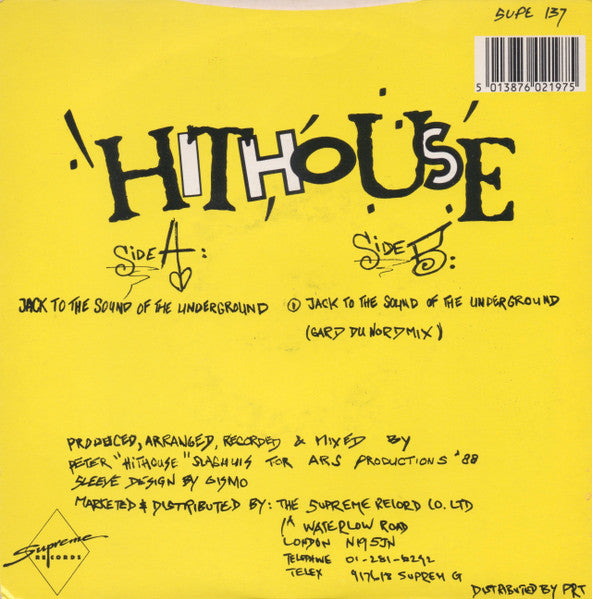 SUPE 137
5 013876 021975
HITHOUSE
SIDE A:
JACK TO THE SOUND OF THE UNDERGROUND
SIDE B:
① JACK TO THE SOUND OF THE UNDERGROUND
(GARD DU NORD MIX)
PRODUCED, ARRANGED, RECORDED & MIXED BY
PETER "HITHOUSE" SLAGHUIS FOR ARS PRODUCTIONS '88
SLEEVE DESIGN BY GISMO
MARKETED & DISTRIBUTED BY: THE SUPREME RECORD CO. LTD
1A WATERLOW ROAD
LONDON N19 5JN
TELEPHONE 01-281-6292
TELEX 917618 SUPREM G
Supreme
RECORDS
DISTRIBUTED BY PRT